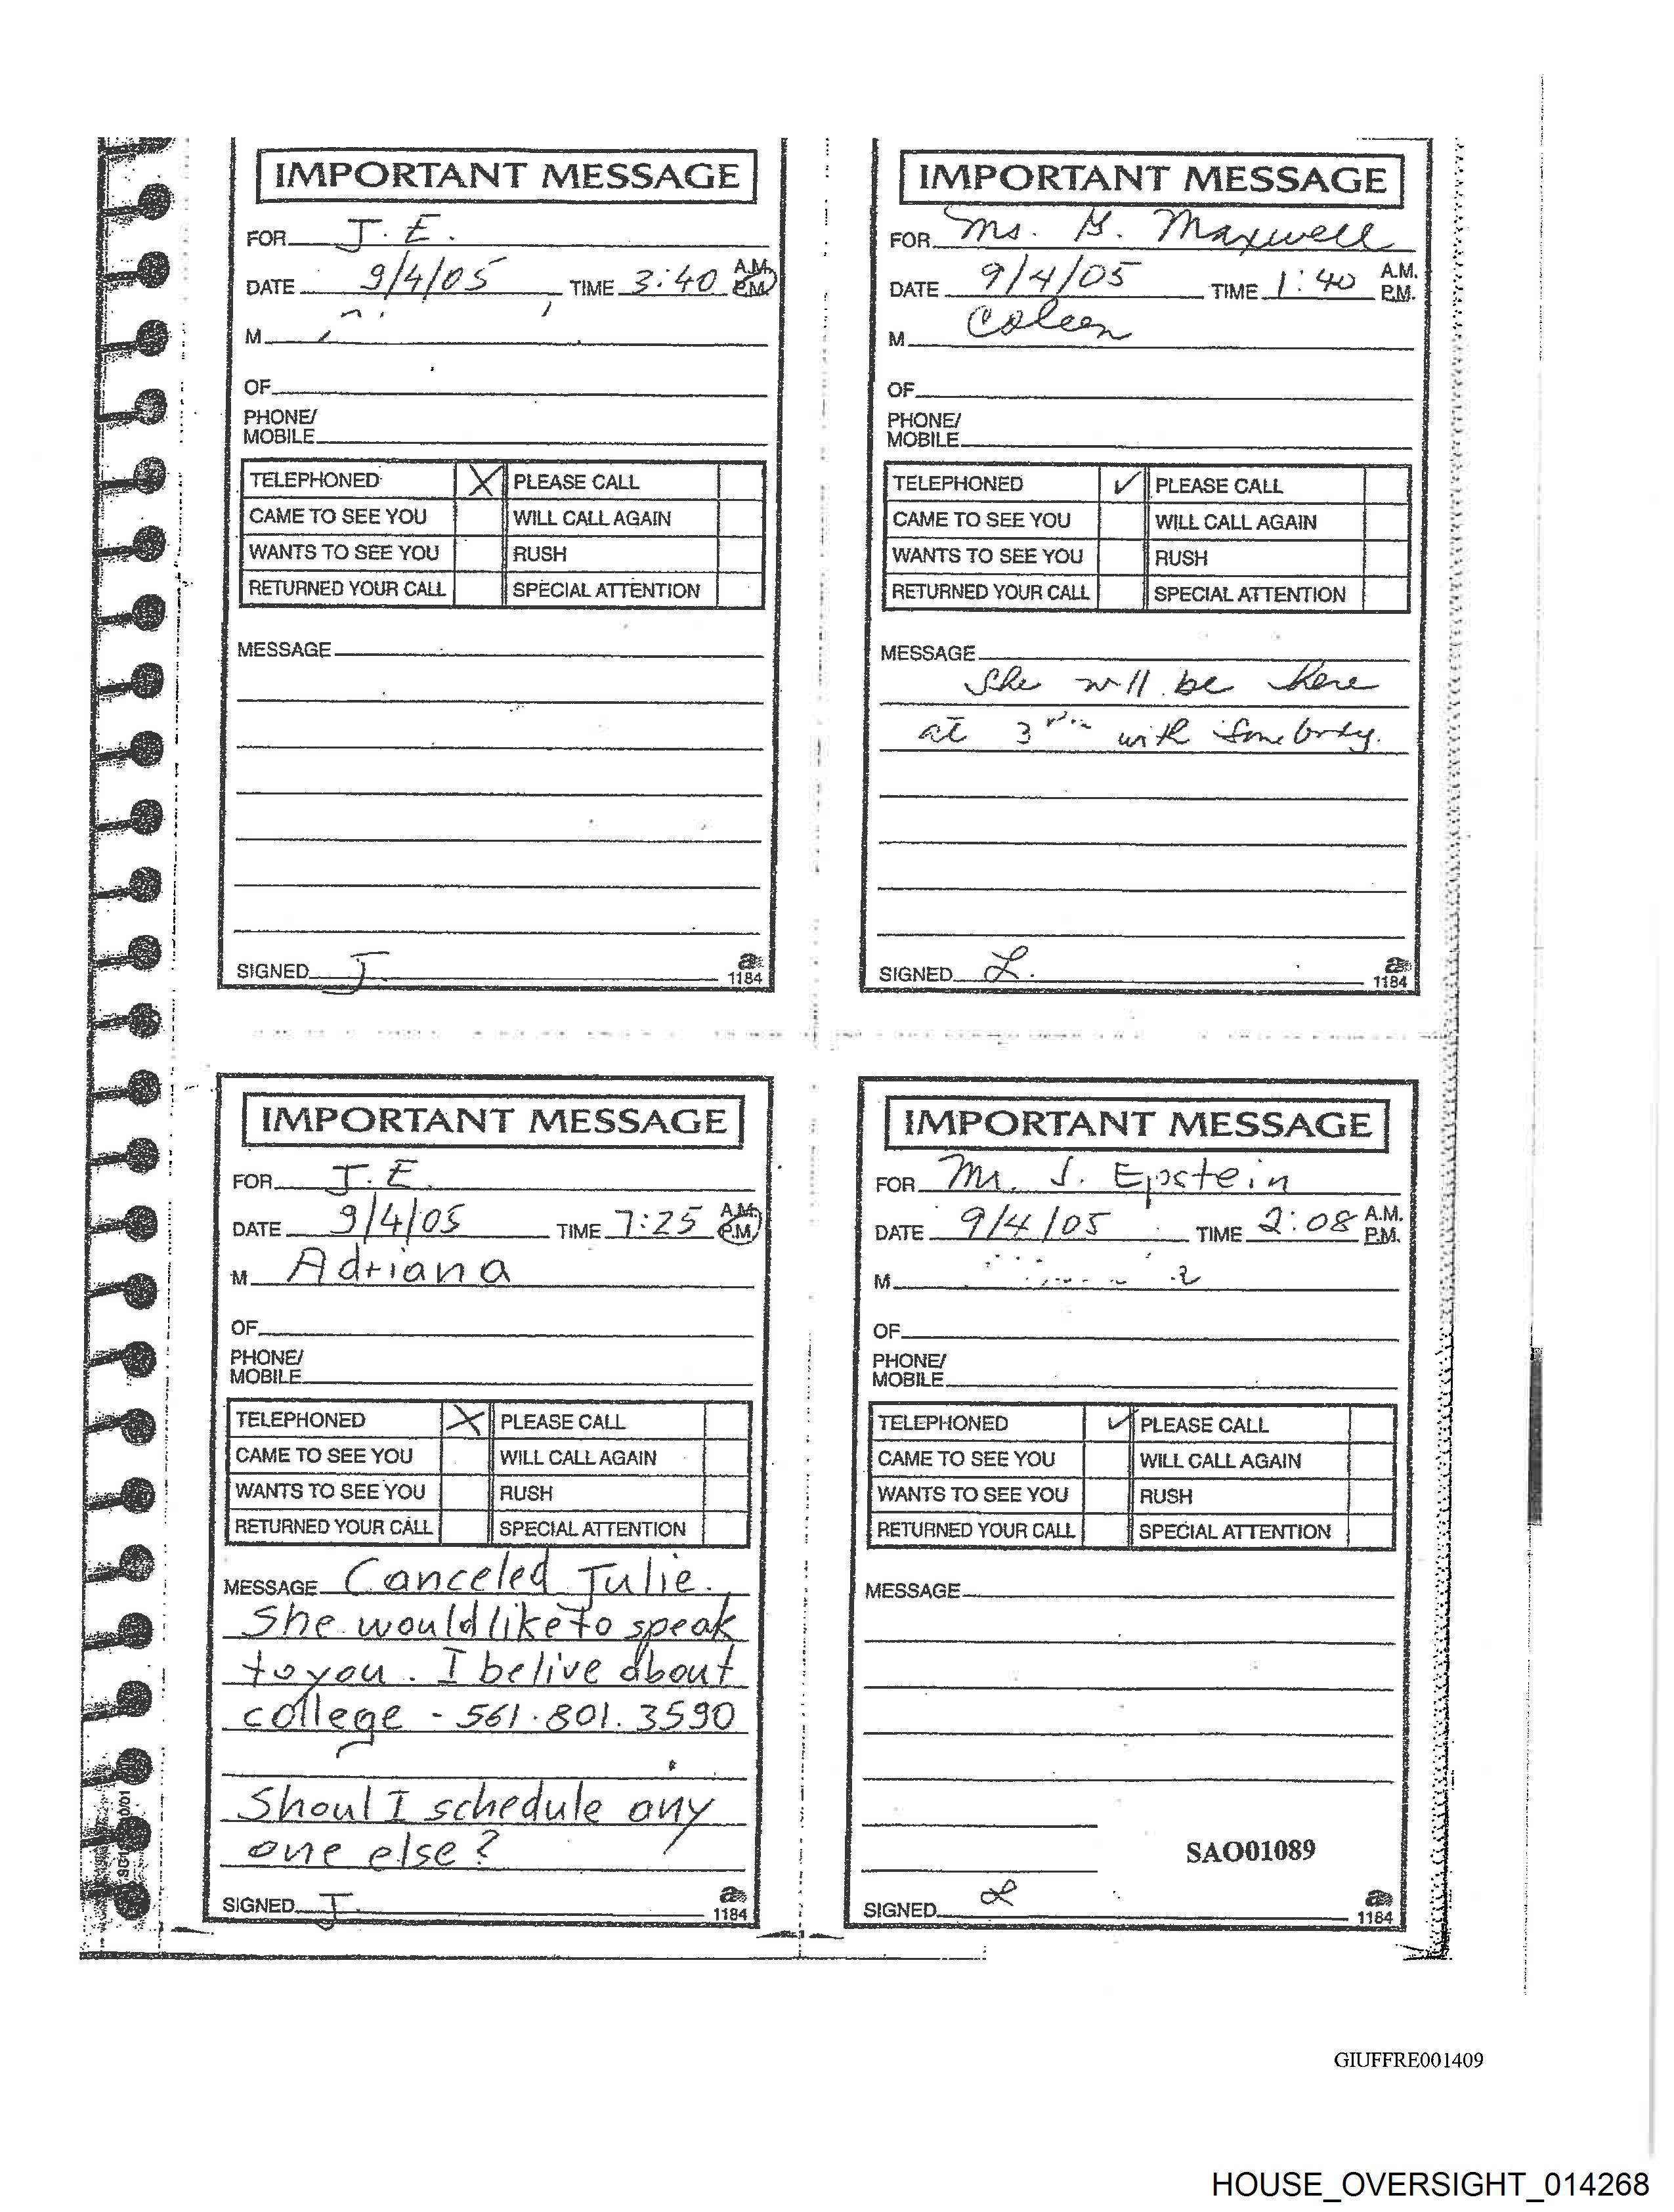 IMPORTANT MESSAGE
FOR J. E.
DATE 9/4/05 TIME 3:40 A.M. P.M.
M
OF
PHONE/
MOBILE
TELEPHONED X PLEASE CALL
CAME TO SEE YOU WILL CALL AGAIN
WANTS TO SEE YOU RUSH
RETURNED YOUR CALL SPECIAL ATTENTION
MESSAGE
SIGNED J.
1184
IMPORTANT MESSAGE
FOR Ms. G. Maxwell
DATE 9/4/05 TIME 1:40 A.M. P.M.
M Coleen
OF
PHONE/
MOBILE
TELEPHONED ✓ PLEASE CALL
CAME TO SEE YOU WILL CALL AGAIN
WANTS TO SEE YOU RUSH
RETURNED YOUR CALL SPECIAL ATTENTION
MESSAGE
She will be here
at 3 with somebody.
SIGNED L.
1184
IMPORTANT MESSAGE
FOR J. E.
DATE 9/4/05 TIME 7:25 A.M. P.M.
M Adriana
OF
PHONE/
MOBILE
TELEPHONED X PLEASE CALL
CAME TO SEE YOU WILL CALL AGAIN
WANTS TO SEE YOU RUSH
RETURNED YOUR CALL SPECIAL ATTENTION
MESSAGE Canceled Julie.
She would like to speak
to you. I belive about
college - 561.801.3590
Shoul I schedule any
one else?
SIGNED J.
1184
IMPORTANT MESSAGE
FOR Mr. J. Epstein
DATE 9/4/05 TIME 2:08 A.M. P.M.
M
OF
PHONE/
MOBILE
TELEPHONED ✓ PLEASE CALL
CAME TO SEE YOU WILL CALL AGAIN
WANTS TO SEE YOU RUSH
RETURNED YOUR CALL SPECIAL ATTENTION
MESSAGE
SAO01089
SIGNED L
1184
GIUFFRE001409
HOUSE_OVERSIGHT_014268